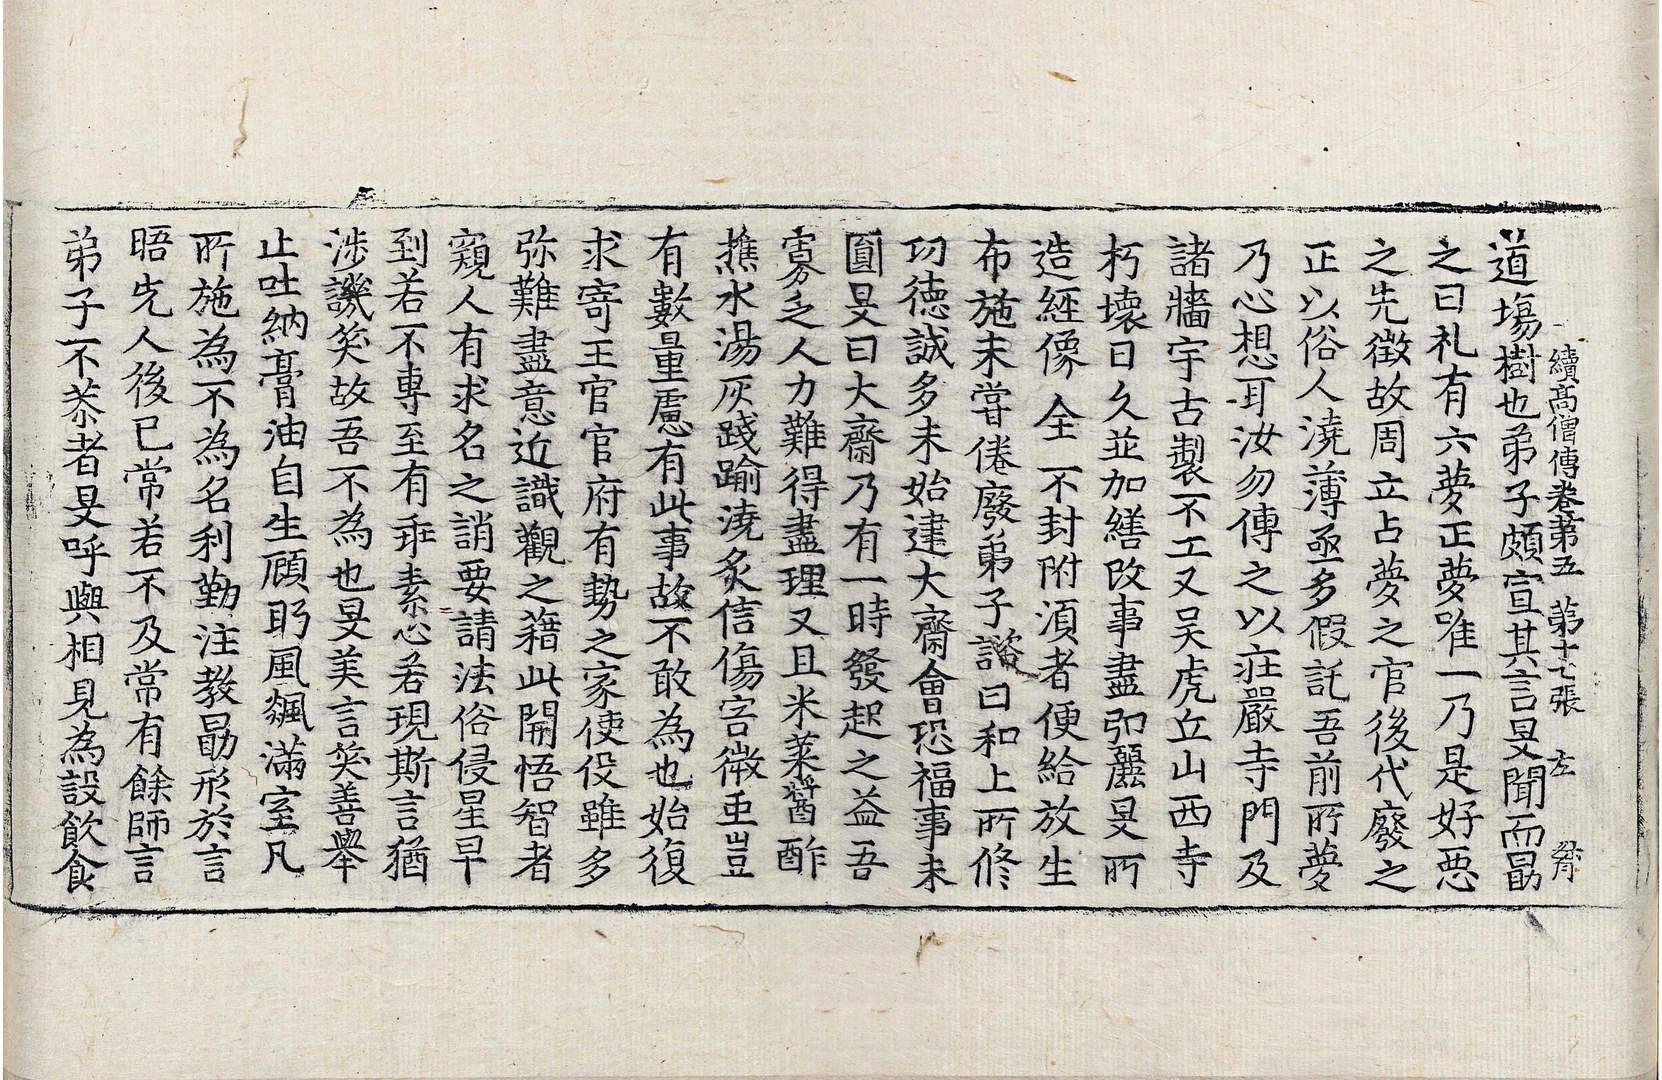 續高僧傳卷第五 第十七張 左
道場樹也弟子頗宣其言旻聞而勗
之曰礼有六夢正夢唯一乃是好惡
之先徵故周立占夢之官後代廢之
正以俗人澆薄亟多假託吾前所夢
乃心想耳汝勿傳之以莊嚴寺門及
諸牆宇古製不工又吳虎丘山西寺
朽壞日久並加繕改事盡弘麗旻所
造經像全不封附須者便給放生
布施未嘗倦廢弟子諮曰和上所修
功德誠多未始建大齋會恐福事未
圓旻曰大齋乃有一時發起之益吾
寡乏人力難得盡理又且米菜醬酢
樵水湯灰踐踰澆炙信傷害微虫豈
有數量慮有此事故不敢為也始復
求寄王官官府有勢之家使役雖多
弥難盡意近識觀之藉此開悟智者
窺人有求名之誚要請法俗侵星早
到若不專至有乖素心若現斯言猶
涉譏笑故吾不為也旻美言笑善舉
止吐納膏油自生顧眄風飆滿室凡
所施為不為名利勤注教勗形於言
晤先人後已常若不及常有餘師言
弟子不恭者旻呼與相見為設飲食